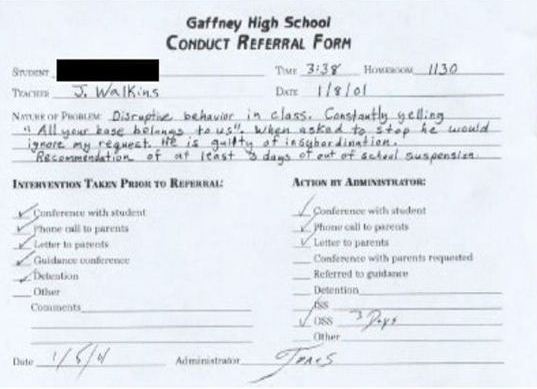 Gaffney High School
CONDUCT REFERRAL FORM
STUDENT TIME 3:38 HOMEROOM 1130
TEACHER J. Walkins DATE 1/8/01
NATURE OF PROBLEM: Disruptive behavior in class. Constantly yelling
"All your base belongs to us". When asked to stop he would
ignore my request. He is guilty of insubordination.
Recommendation of at least 3 days of out of school suspension.
INTERVENTION TAKEN PRIOR TO REFERRAL:
✓ Conference with student
✓ Phone call to parents
✓ Letter to parents
✓ Guidance conference
✓ Detention
Other
Comments
Date 1/5/01
ACTION BY ADMINISTRATOR:
✓ Conference with student
✓ Phone call to parents
✓ Letter to parents
Conference with parents requested
Referred to guidance
Detention
ISS
✓ OSS 3 Days
Other
Administrator Jones